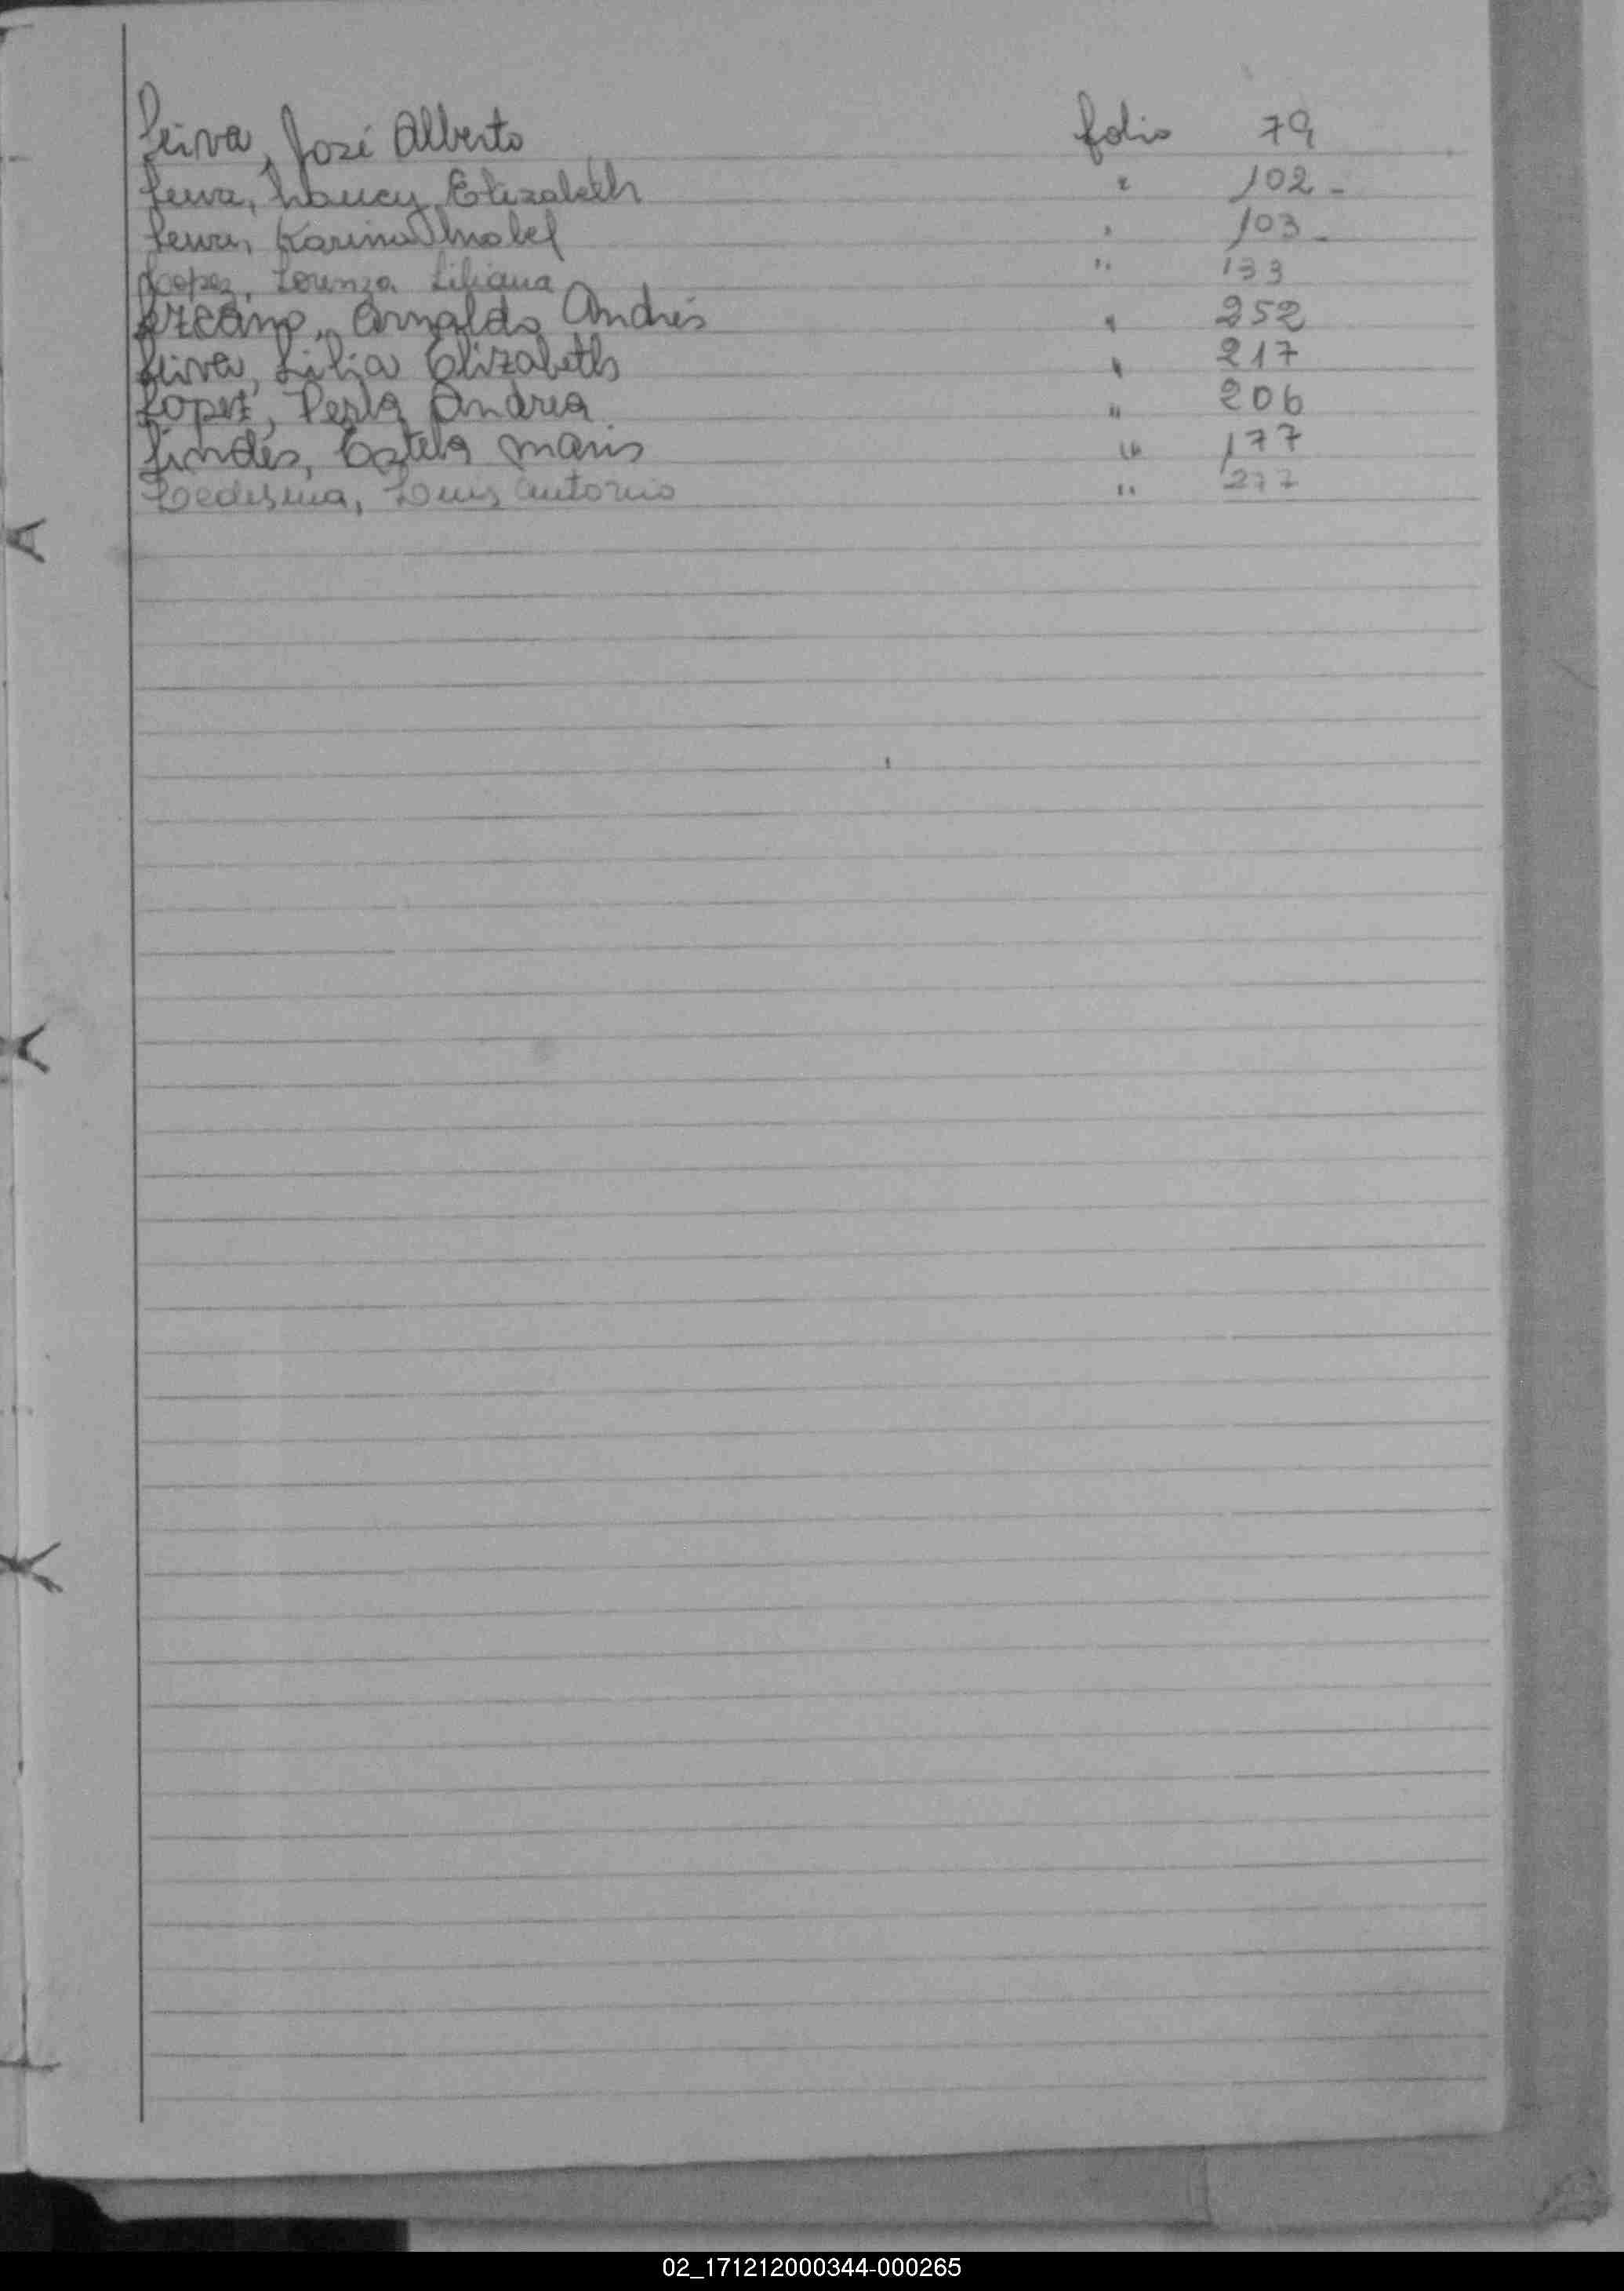 Leiva, José Alberto folio 79
Leiva, Nancy Elizabeth " 102-
Leiva, Karina Mabel " 103-
Lopez, Lorenza Liliana " 133
Lezcano, Arnaldo Andrés " 252
Leiva, Lilia Elizabeth " 217
Lopez, Perla Andrea " 206
Estela Maris " 177
Ledesma, Luis Antonio " 277
02_171212000344-000265